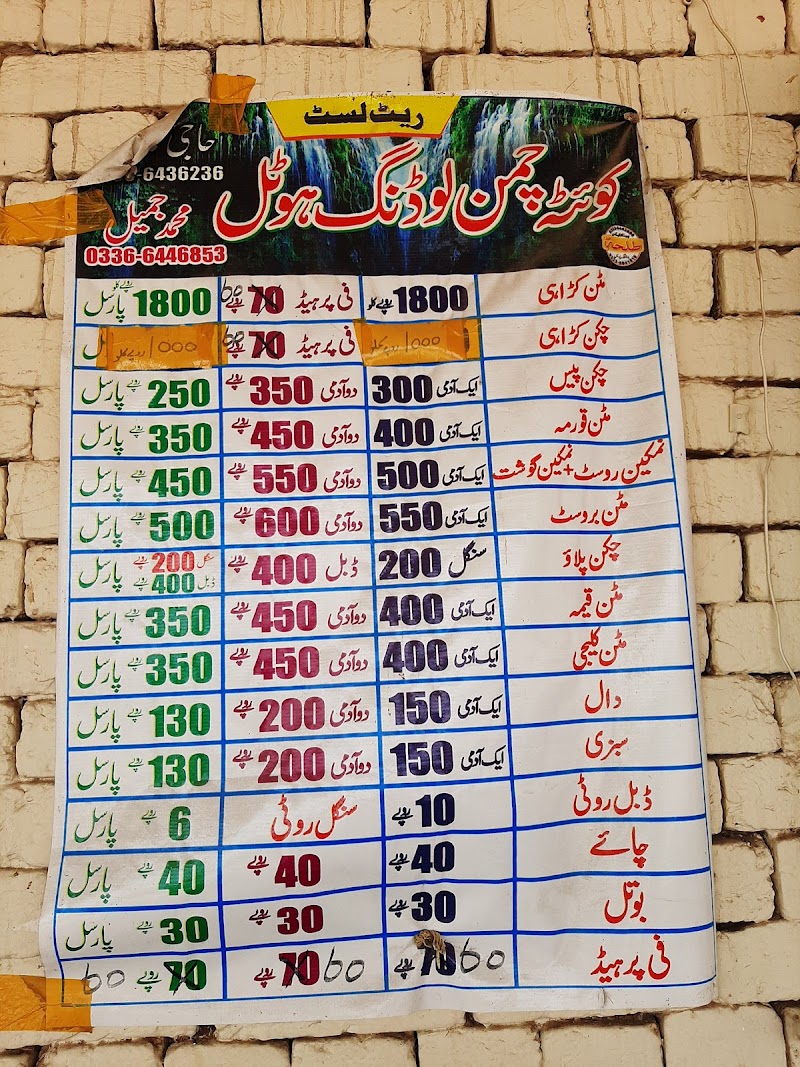 ریٹ لسٹ
حاجی
-6436236
کوئٹہ چمن لوڈنگ ہوٹل
محمد جمیل
0336-6446853
طلحہ
مٹن کڑاہی 1800 روپے کلو فی پر ہیڈ 70 60 روپے 1800 روپے کلو پارسل
چکن کڑاہی 1000 روپے کلو فی پر ہیڈ 70 60 روپے 1000 روپے کلو
چکن پیس ایک آدمی 300 دو آدمی 350 روپے 250 روپے پارسل
مٹن قورمہ ایک آدمی 400 دو آدمی 450 روپے 350 روپے پارسل
نمکین روسٹ+نمکین گوشت ایک آدمی 500 دو آدمی 550 روپے 450 روپے پارسل
مٹن بروسٹ ایک آدمی 550 دو آدمی 600 روپے 500 روپے پارسل
چکن پلاؤ سنگل 200 ڈبل 400 روپے سنگل 200 روپے ڈبل 400 روپے پارسل
مٹن قیمہ ایک آدمی 400 دو آدمی 450 روپے 350 روپے پارسل
مٹن کلیجی ایک آدمی 400 دو آدمی 450 روپے 350 روپے پارسل
دال ایک آدمی 150 دو آدمی 200 روپے 130 روپے پارسل
سبزی ایک آدمی 150 دو آدمی 200 روپے 130 روپے پارسل
ڈبل روٹی 10 روپے سنگل روٹی 6 روپے پارسل
چائے 40 روپے 40 روپے 40 روپے پارسل
بوتل 30 روپے 30 روپے 30 روپے پارسل
فی پر ہیڈ 70 60 روپے 70 60 روپے 70 روپے 60